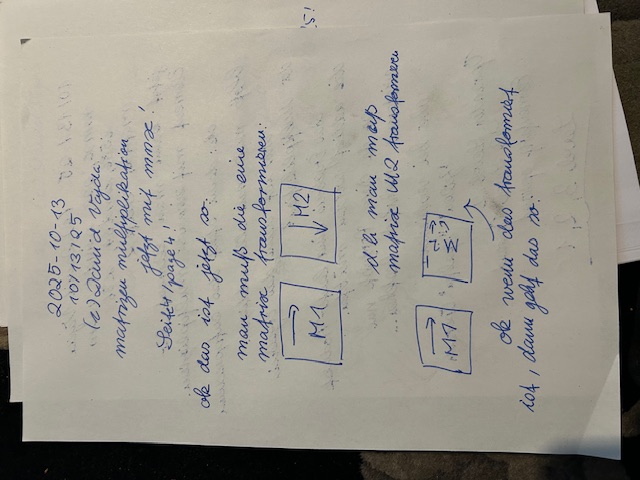 2025-10-13
10/13/25
(c) David Vajda
matrizen multiplikation
jetzt mit mmx!
Seite 4/page 4!
ok das ist jetzt so.
man muß die eine
matrix transformieren:
→ ↓ M2
M1
d.h. man muß
matrix M2 transformieren
→ →
M1 M2
ok wenn das transformiert
ist, dann geht das so:
5!